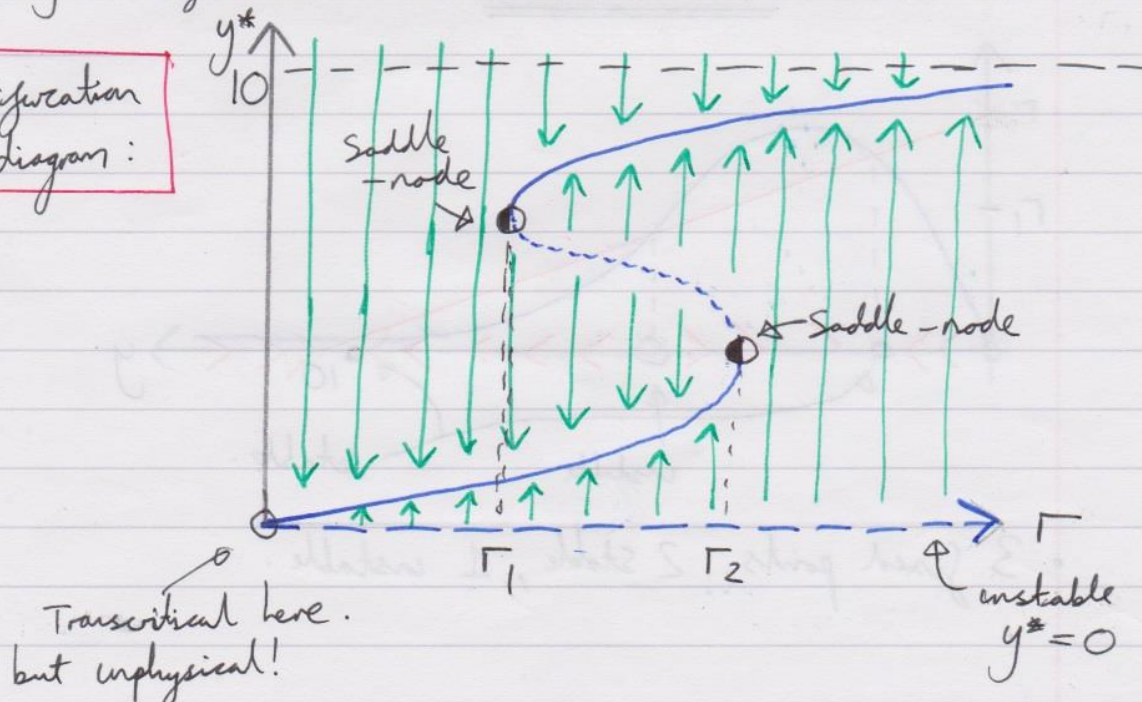 y*
10
diagram :
Saddle
-node
Saddle-node
r1
r2
r
unstable
y* = 0
Transcritical here.
but unphysical!